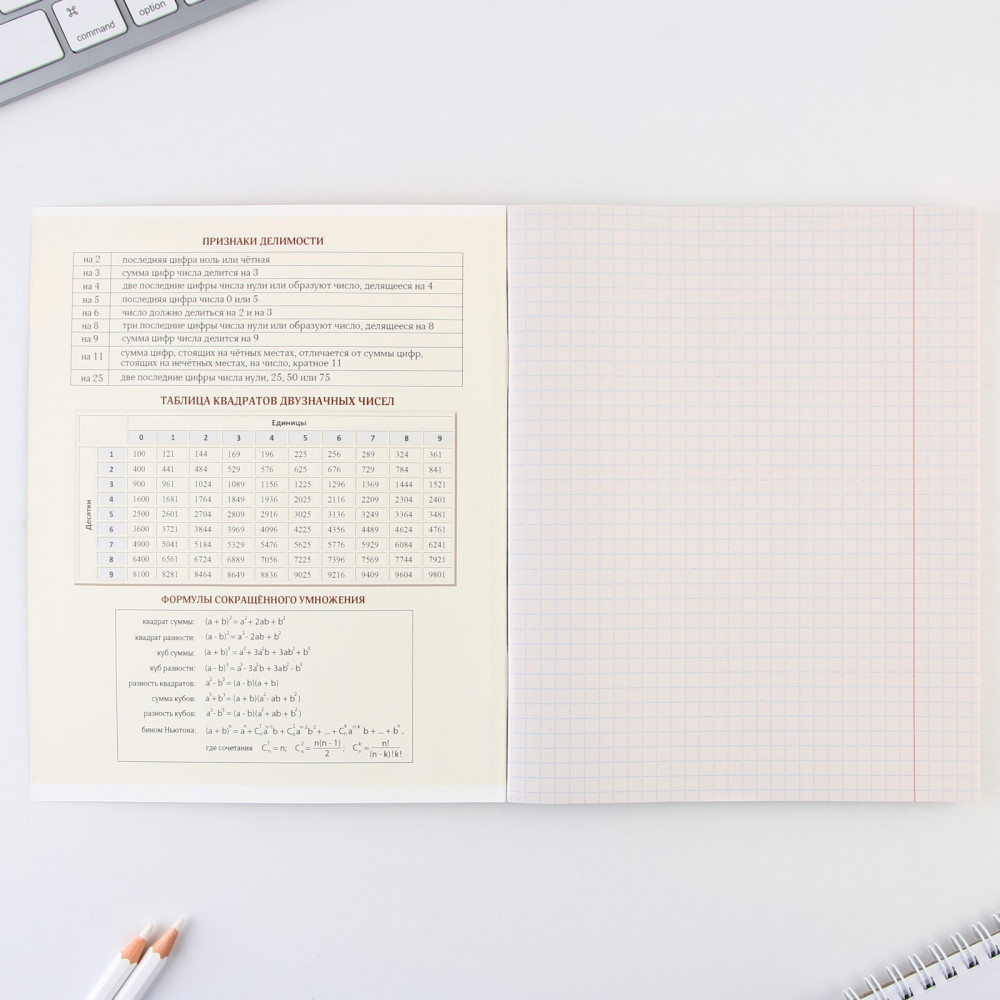 ⌘
command
option
ПРИЗНАКИ ДЕЛИМОСТИ
на 2 последняя цифра ноль или чётная
на 3 сумма цифр числа делится на 3
на 4 две последние цифры числа нули или образуют число, делящееся на 4
на 5 последняя цифра числа 0 или 5
на 6 число должно делиться на 2 и на 3
на 8 три последние цифры числа нули или образуют число, делящееся на 8
на 9 сумма цифр числа делится на 9
на 11 сумма цифр, стоящих на чётных местах, отличается от суммы цифр,
стоящих на нечётных местах, на число, кратное 11
на 25 две последние цифры числа нули, 25, 50 или 75
ТАБЛИЦА КВАДРАТОВ ДВУЗНАЧНЫХ ЧИСЕЛ
Единицы
0 1 2 3 4 5 6 7 8 9
Десятки
1 100 121 144 169 196 225 256 289 324 361
2 400 441 484 529 576 625 676 729 784 841
3 900 961 1024 1089 1156 1225 1296 1369 1444 1521
4 1600 1681 1764 1849 1936 2025 2116 2209 2304 2401
5 2500 2601 2704 2809 2916 3025 3136 3249 3364 3481
6 3600 3721 3844 3969 4096 4225 4356 4489 4624 4761
7 4900 5041 5184 5329 5476 5625 5776 5929 6084 6241
8 6400 6561 6724 6889 7056 7225 7396 7569 7744 7921
9 8100 8281 8464 8649 8836 9025 9216 9409 9604 9801
ФОРМУЛЫ СОКРАЩЁННОГО УМНОЖЕНИЯ
квадрат суммы: (a + b)² = a² + 2ab + b²
квадрат разности: (a - b)² = a² - 2ab + b²
куб суммы: (a + b)³ = a³ + 3a²b + 3ab² + b³
куб разности: (a - b)³ = a³ - 3a²b + 3ab² - b³
разность квадратов: a² - b² = (a - b)(a + b)
сумма кубов: a³ + b³ = (a + b)(a² - ab + b²)
разность кубов: a³ - b³ = (a - b)(a² + ab + b²)
бином Ньютона: (a + b)ⁿ = aⁿ + Cₙ¹aⁿ⁻¹b + Cₙ²aⁿ⁻²b² + ... + Cₙᵏaⁿ⁻ᵏ b + ... + bⁿ,
где сочетания Cₙ¹ = n; Cₙ² = n(n - 1)/2; Cₙᵏ = n!/(n - k)!k!